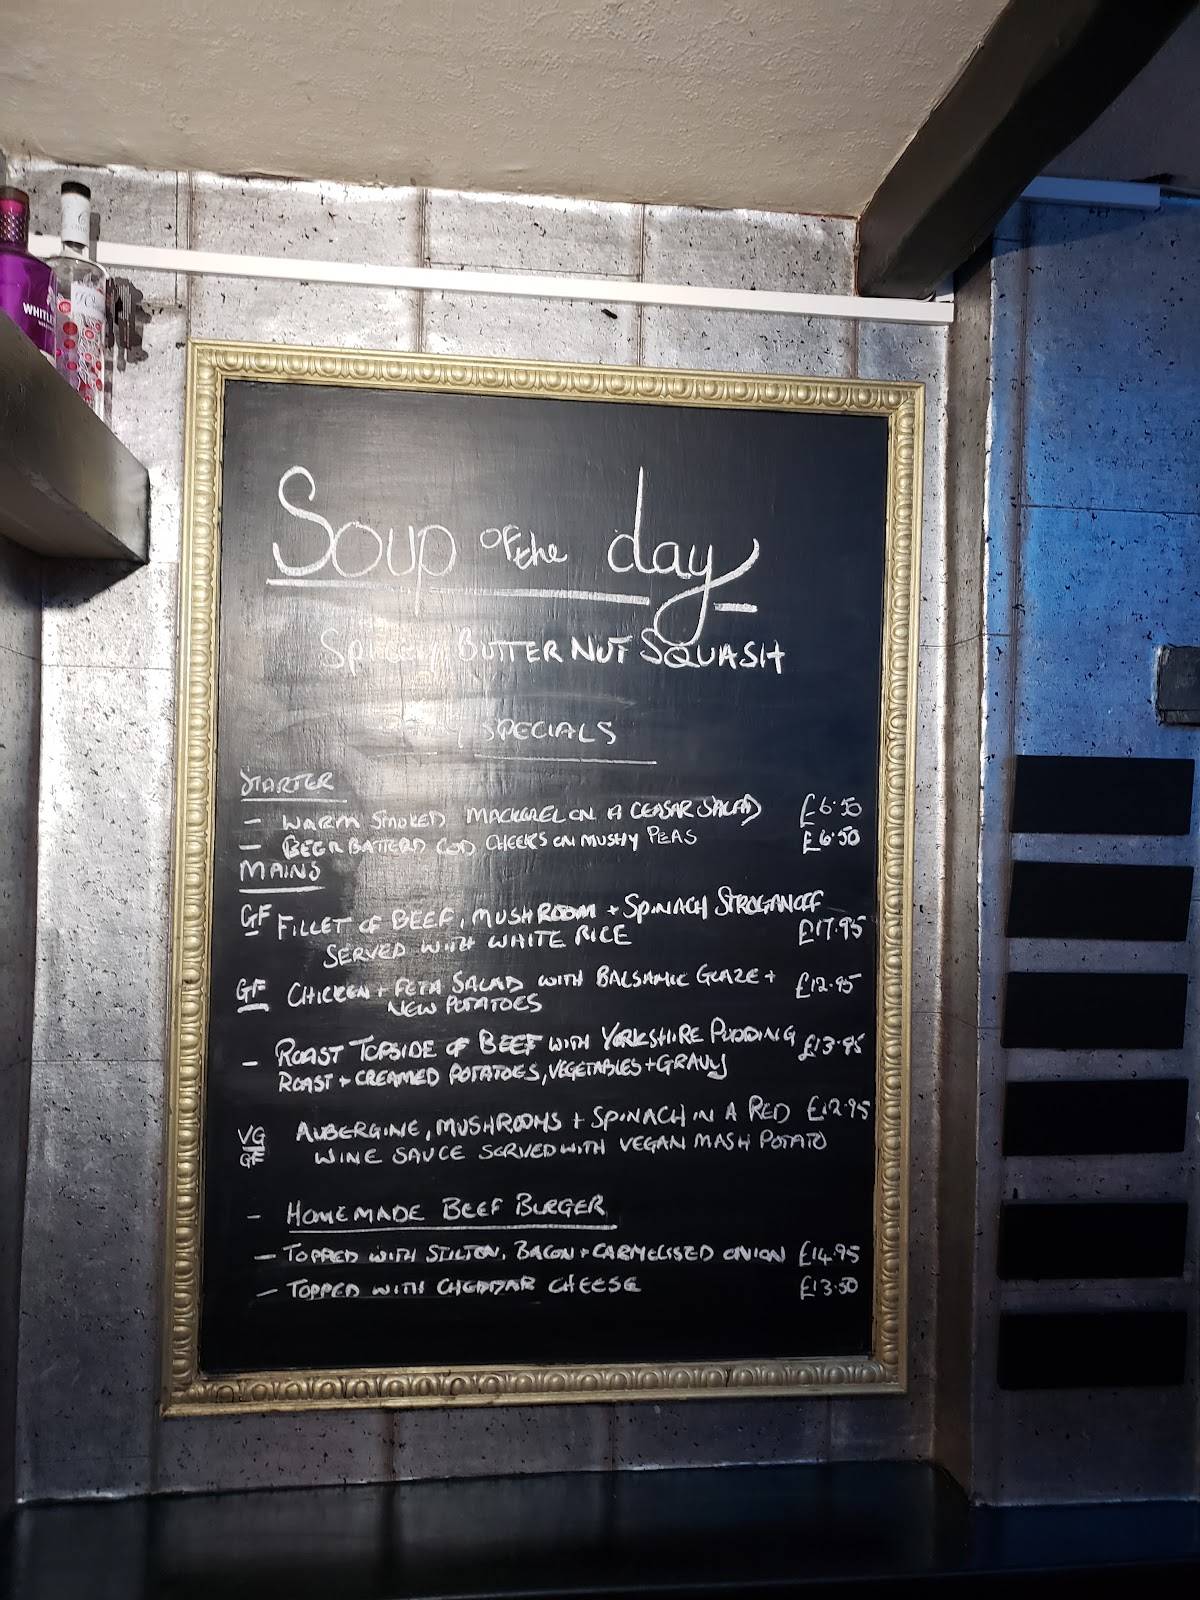 WHITLE
Soup of the day
SPICEY BUTTERNUT SQUASH
SPECIALS
STARTER
- WARM SMOKED MACKEREL ON A CEASAR SALAD £6.50
- BEER BATTERD COD CHEEKS ON MUSHY PEAS £6.50
MAINS
GF FILLET OF BEEF, MUSHROOM + SPINACH STROGANOFF
SERVED WITH WHITE RICE £17.95
GF CHICKEN + FETA SALAD WITH BALSAMIC GLAZE + £12.95
NEW POTATOES
- ROAST TOPSIDE OF BEEF WITH YORKSHIRE PUDDING £13.95
ROAST + CREAMED POTATOES, VEGETABLES + GRAVY
VG AUBERGINE, MUSHROOMS + SPINACH IN A RED £12.95
GF WINE SAUCE SERVED WITH VEGAN MASH POTATO
- HOMEMADE BEEF BURGER
- TOPPED WITH STILTON, BACON + CARMELISED ONION £14.95
- TOPPED WITH CHEDDAR CHEESE £13.50